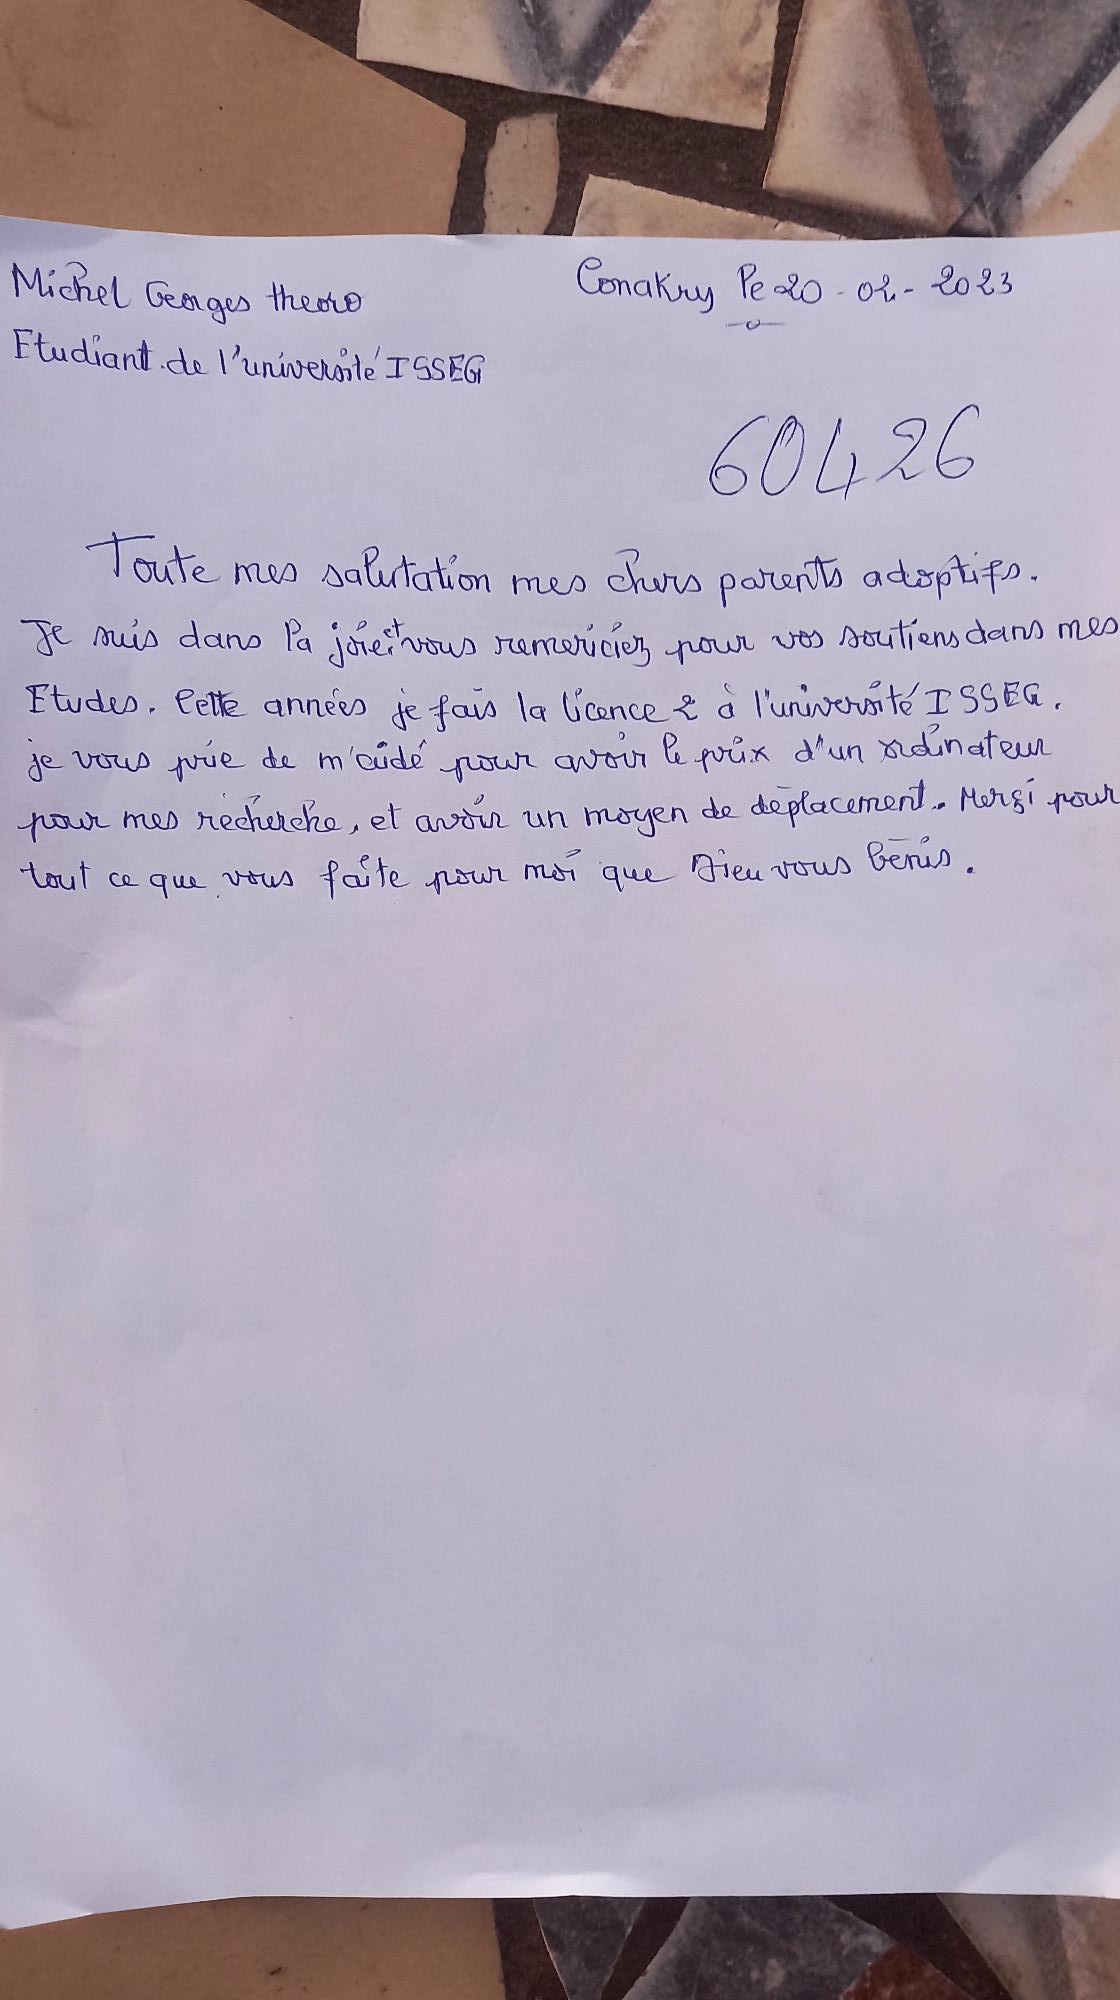 Michel Georges theoro
Conakry le 20-02-2023
Etudiant de l'université ISSEG
60426
Toute mes salutation mes chers parents adoptifs.
Je suis dans la joie et vous remericiez pour vos soutiens dans mes
Etudes. Cette années je fais la licence 2 à l'université ISSEG.
je vous prie de m'aidé pour avoir le prix d'un ordinateur
pour mes recherche, et avoir un moyen de deplacement. Mersi pour
tout ce que vous faite pour moi que Dieu vous bénis.